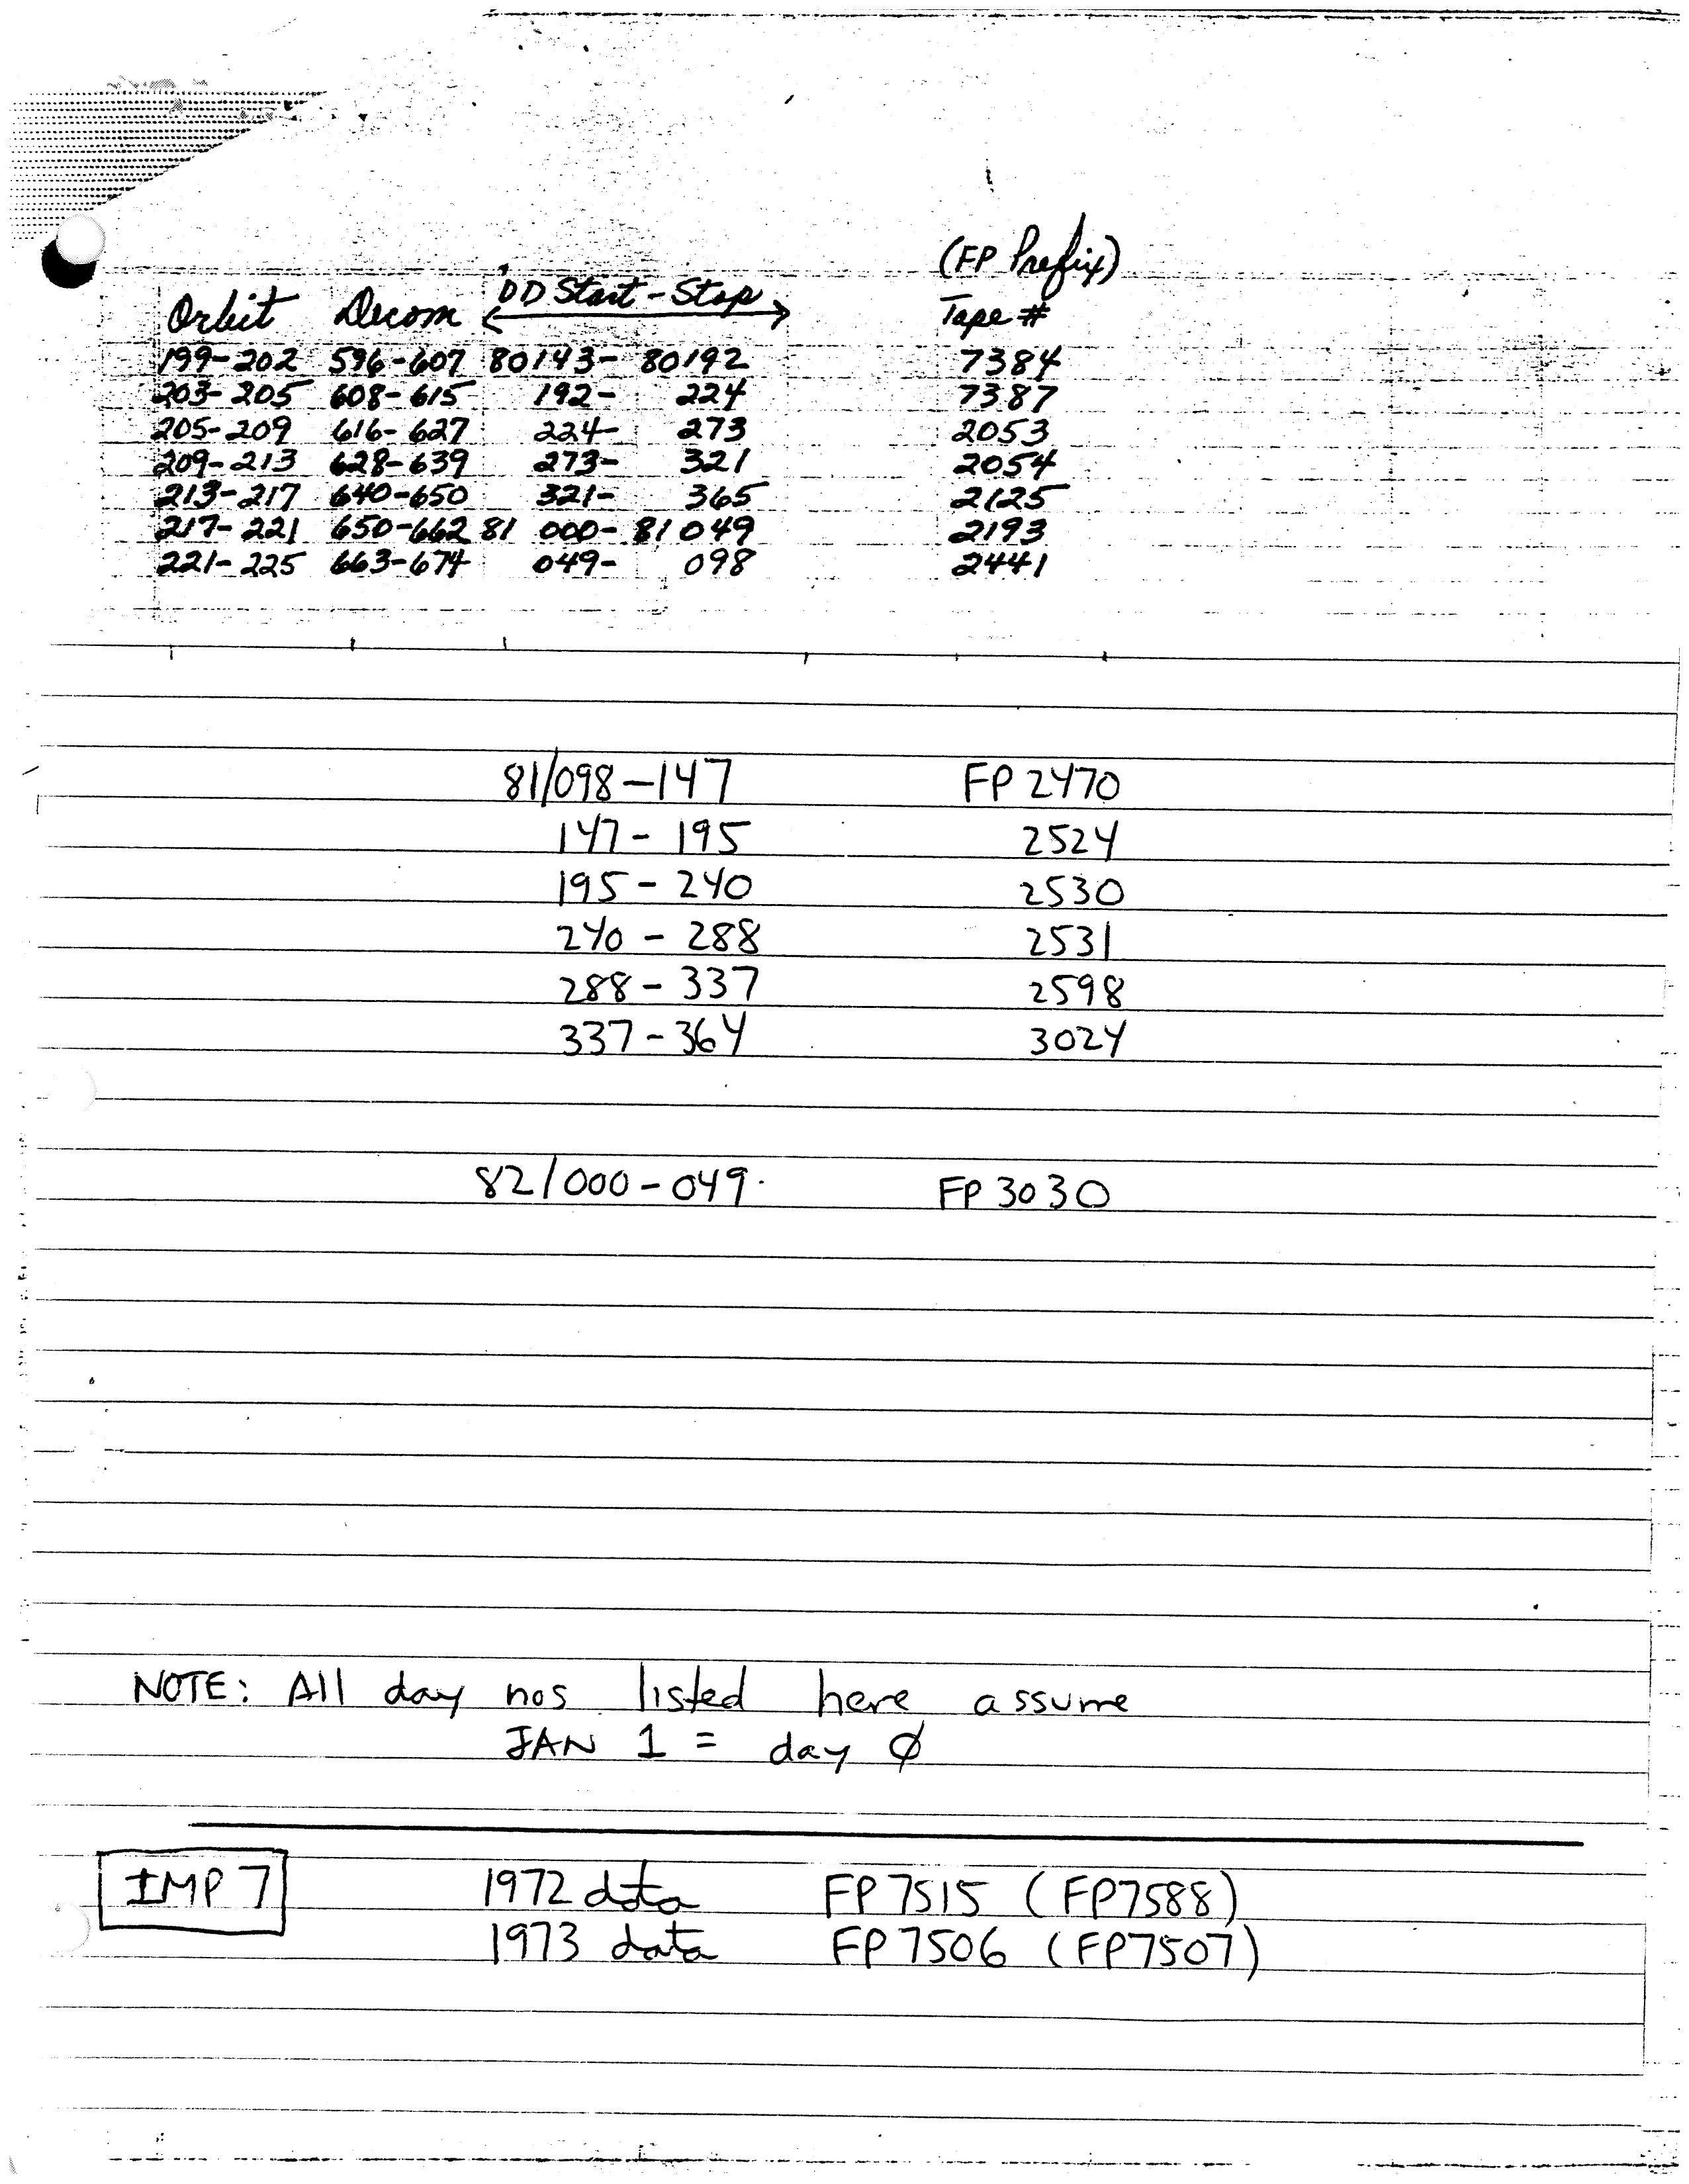 (FP Prefix)
Orbit Decom DD Start - Stop Tape #
199-202 596-607 80143- 80192 7384
203-205 608-615 192- 224 7387
205-209 616-627 224- 273 2053
209-213 628-639 273- 321 2054
213-217 640-650 321- 365 2125
217-221 650-662 81 000- 81049 2193
221-225 663-674 049- 098 2441
81/098-147 FP 2470
147- 195 2524
195- 240 2530
240 - 288 2531
288- 337 2598
337-364 3024
82/000-049. FP 3030
NOTE: All day nos listed here assume
JAN 1 = day Ø
IMP 7 1972 data FP 7515 (FP7588)
1973 data FP 7506 (FP7507)